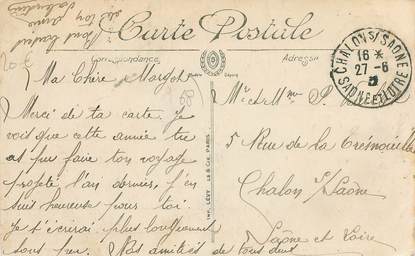 Carte Postale
Correspondance
Adresse
CHALON S/SAONE
16 *
27-6
SAONE ET LOIRE
Ma Chère Margot
Merci de ta carte. Je
vois que cette année tu
as pu faire ton voyage
projeté l'an dernier, j'en
suis heureuse pour toi.
Je t'écrirai plus longuement
sous peu. Mes amitiés de tous deux
Mr et Mme P.
5 Rue de la Trémouille
Chalon s/Saône
Saône et Loire
IMP. LÉVY & Cie PARIS